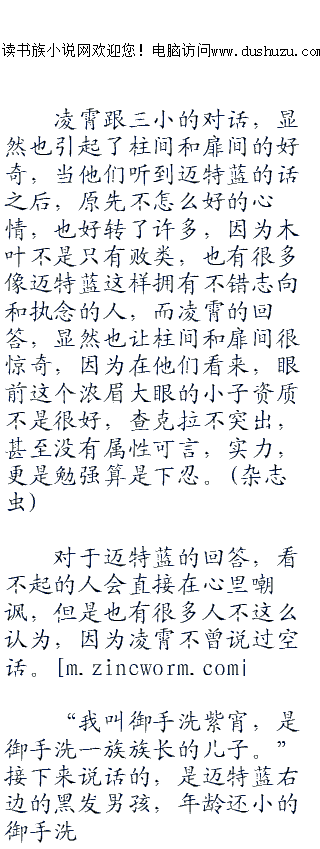 读书族小说网欢迎您！电脑访问www.dushuzu.com
凌霄跟三小的对话，显
然也引起了柱间和扉间的好
奇，当他们听到迈特蓝的话
之后，原先不怎么好的心
情，也好转了许多，因为木
叶不是只有败类，也有很多
像迈特蓝这样拥有不错志向
和执念的人，而凌霄的回
答，显然也让柱间和扉间很
惊奇，因为在他们看来，眼
前这个浓眉大眼的小子资质
不是很好，查克拉不突出，
甚至没有属性可言，实力，
更是勉强算是下忍。(杂志
虫)
对于迈特蓝的回答，看
不起的人会直接在心里嘲
讽，但是也有很多人不这么
认为，因为凌霄不曾说过空
话。[m.zincworm.com|
“我叫御手洗紫宵，是
御手洗一族族长的儿子。”
接下来说话的，是迈特蓝右
边的黑发男孩，年龄还小的
御手洗